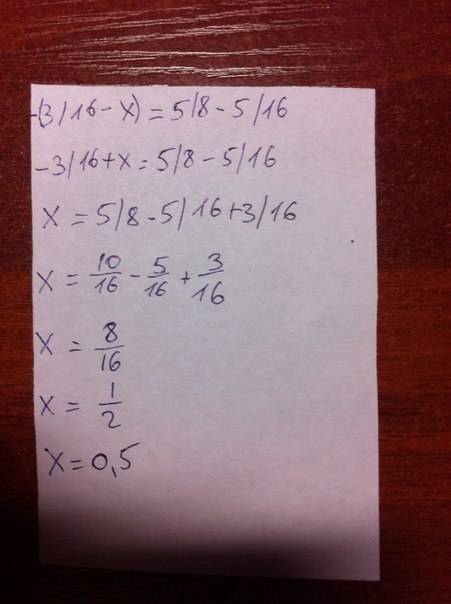 -(3/16 - x) = 5/8 - 5/16
-3/16 + x = 5/8 - 5/16
x = 5/8 - 5/16 + 3/16
x = 10/16 - 5/16 + 3/16
x = 8/16
x = 1/2
x = 0,5